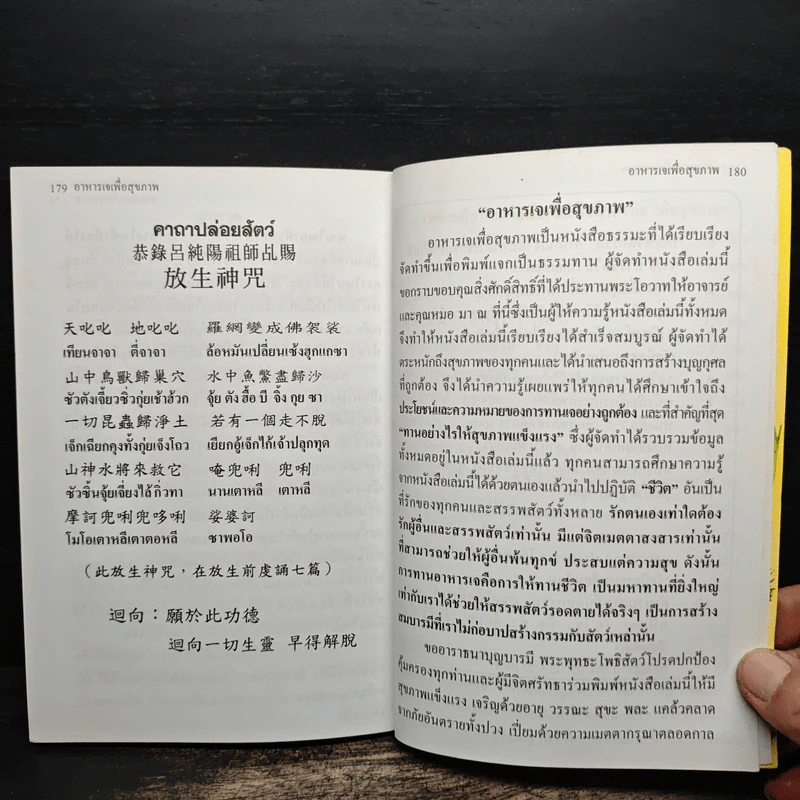 179 อาหารเจเพื่อสุขภาพ
คาถาปล่อยสัตว์
恭錄呂純陽祖師乩賜
放生神咒
天叱叱 地叱叱 羅網變成佛袈裟
เทียนจาจา ตี่จาจา ล้อหมันเปลี่ยนเซ้งฮุกแกซา
山中鳥獸歸巢穴 水中魚鱉盡歸沙
ซัวตังเจี้ยวซิ่วกุยเช้าฮ้วก จุ้ย ตังฮื้อ บี จิ้ง กุย ซา
一切昆蟲歸淨土 若有一個走不脫
เจ็กเฉียกคุงทั้งกุ่ยเจ็งโถว เยียกอู้เจ็กไก้เจ้าปลุกทุด
山神水將來救它 唵兜唎 兜唎
ซัวซิ้นจุ้ยเจี่ยงไล้กิ่วทา นานเตาหลี เตาหลี
摩訶兜唎兜哆唎 娑婆訶
โมโอเตาหลีเตาตอหลี ซาพอโอ
(此放生神咒，在放生前虔誦七篇)
迴向：願於此功德
迴向一切生靈 早得解脫
อาหารเจเพื่อสุขภาพ 180
“อาหารเจเพื่อสุขภาพ”
อาหารเจเพื่อสุขภาพเป็นหนังสือธรรมะที่ได้เรียบเรียง
จัดทำขึ้นเพื่อพิมพ์แจกเป็นธรรมทาน ผู้จัดทำหนังสือเล่มนี้
ขอกราบขอบคุณสิ่งศักดิ์สิทธิ์ที่ได้ประทานพระโอวาทให้อาจารย์
และคุณหมอ มา ณ ที่นี้ซึ่งเป็นผู้ให้ความรู้หนังสือเล่มนี้ทั้งหมด
จึงทำให้หนังสือเล่มนี้เรียบเรียงได้สำเร็จสมบูรณ์ ผู้จัดทำได้
ตระหนักถึงสุขภาพของทุกคนและได้นำเสนอถึงการสร้างบุญกุศล
ที่ถูกต้อง จึงได้นำความรู้เผยแพร่ให้ทุกคนได้ศึกษาเข้าใจถึง
ประโยชน์และความหมายของการทานเจอย่างถูกต้อง และที่สำคัญที่สุด
“ทานอย่างไรให้สุขภาพแข็งแรง” ซึ่งผู้จัดทำได้รวบรวมข้อมูล
ทั้งหมดอยู่ในหนังสือเล่มนี้แล้ว ทุกคนสามารถศึกษาความรู้
จากหนังสือเล่มนี้ได้ด้วยตนเองแล้วนำไปปฏิบัติ “ชีวิต” อันเป็น
ที่รักของทุกคนและสรรพสัตว์ทั้งหลาย รักตนเองเท่าใดต้อง
รักผู้อื่นและสรรพสัตว์เท่านั้น มีแต่จิตเมตตาสงสารเท่านั้น
ที่สามารถช่วยให้ผู้อื่นพ้นทุกข์ ประสบแต่ความสุข ดังนั้น
การทานอาหารเจคือการให้ทานชีวิต เป็นมหาทานที่ยิ่งใหญ่
เท่ากับเราได้ช่วยให้สรรพสัตว์รอดตายได้จริงๆ เป็นการสร้าง
สมบารมีที่เราไม่ก่อบาปสร้างกรรมกับสัตว์เหล่านั้น
ขออาราธนาบุญบารมี พระพุทธะโพธิสัตว์โปรดปกป้อง
คุ้มครองทุกท่านและผู้มีจิตศรัทธาร่วมพิมพ์หนังสือเล่มนี้ให้มี
สุขภาพแข็งแรง เจริญด้วยอายุ วรรณะ สุขะ พละ แคล้วคลาด
จากภัยอันตรายทั้งปวง เปี่ยมด้วยความเมตตากรุณาตลอดกาล